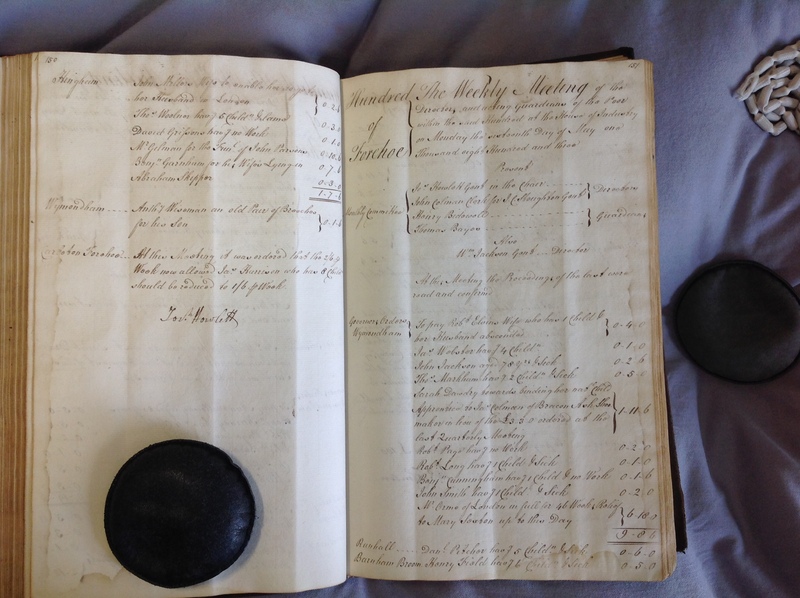 150
Hingham John Milton's Wife to enable her to go to
her Husband in London
Thos. Woolner hav'g 5 Childn. & Lame 0.3.0
David Grissons hav'g no Work 0.1.0
Mr. Gilman for the Funl. of John Parson 0.10.6
Benjn. Garnham for his Wife's Lying in 0.7.
Abraham Skipper 0.3.0
1.7.
Wymondham Anthy. Wiseman an old Pair of Breeches
for his Son 0.1.6
Carleton Forehoe At this Meeting it was ordered that the 2/6 p
Week now allowed Jas. Harrison who has 8 Childn.
should be reduced to 1/6 p Week
Jos. Howlett
151
Hundred of Forehoe
The Weekly Meeting of the
Directors and acting Guardians of the Poor
within the said Hundred at the House of Industry
on Monday the sixteenth Day of May one
Thousand eight Hundred and three
Present
Jos. Howlett Gent. in the Chair
John Colman Clerk for Directors
Weekly Committee Henry Bidewell
Thomas Bayon Guardians
Also
Wm. Jackson Gent. Director
At this Meeting the Proceedings of the last were
read and confirmed
Governor Orders Wymondham To pay Robt. Wife who has 1 Child &
her Husband absconded 0.4.0
Jas. Webster hav'g 4 Childn. 0.1.0
John Jackson aged 78 Yrs. & Sick 0.2.6
Thos. Markham hav'g 2 Childn. & Sick 0.3.0
Sarah Dawdry towards binding her natl. Child
Apprentice to Jas. Colman of
maker a of the £3.3.0 ordered at the 1.11.6
last Quarterly Meeting
Robt. Page hav'g no Work 0.2.0
Robt. Long hav'g 1 Child & Sick 0.1.0
Benjn. Cunningham hav'g 1 Child & no Work 0.1.6
John Smith hav'g 1 Child & Sick 0.2.0
Mr. Orme of London in full for 46 Weeks
to Mary Sexton up to this Day 6.18.0
9.8.6
Runhall Danl. Pitcher hav'g 5 Childn. & Sick 0.6.0
Barnham Broom Henry Field hav'g 6 Childn. & Sick 0.5.0